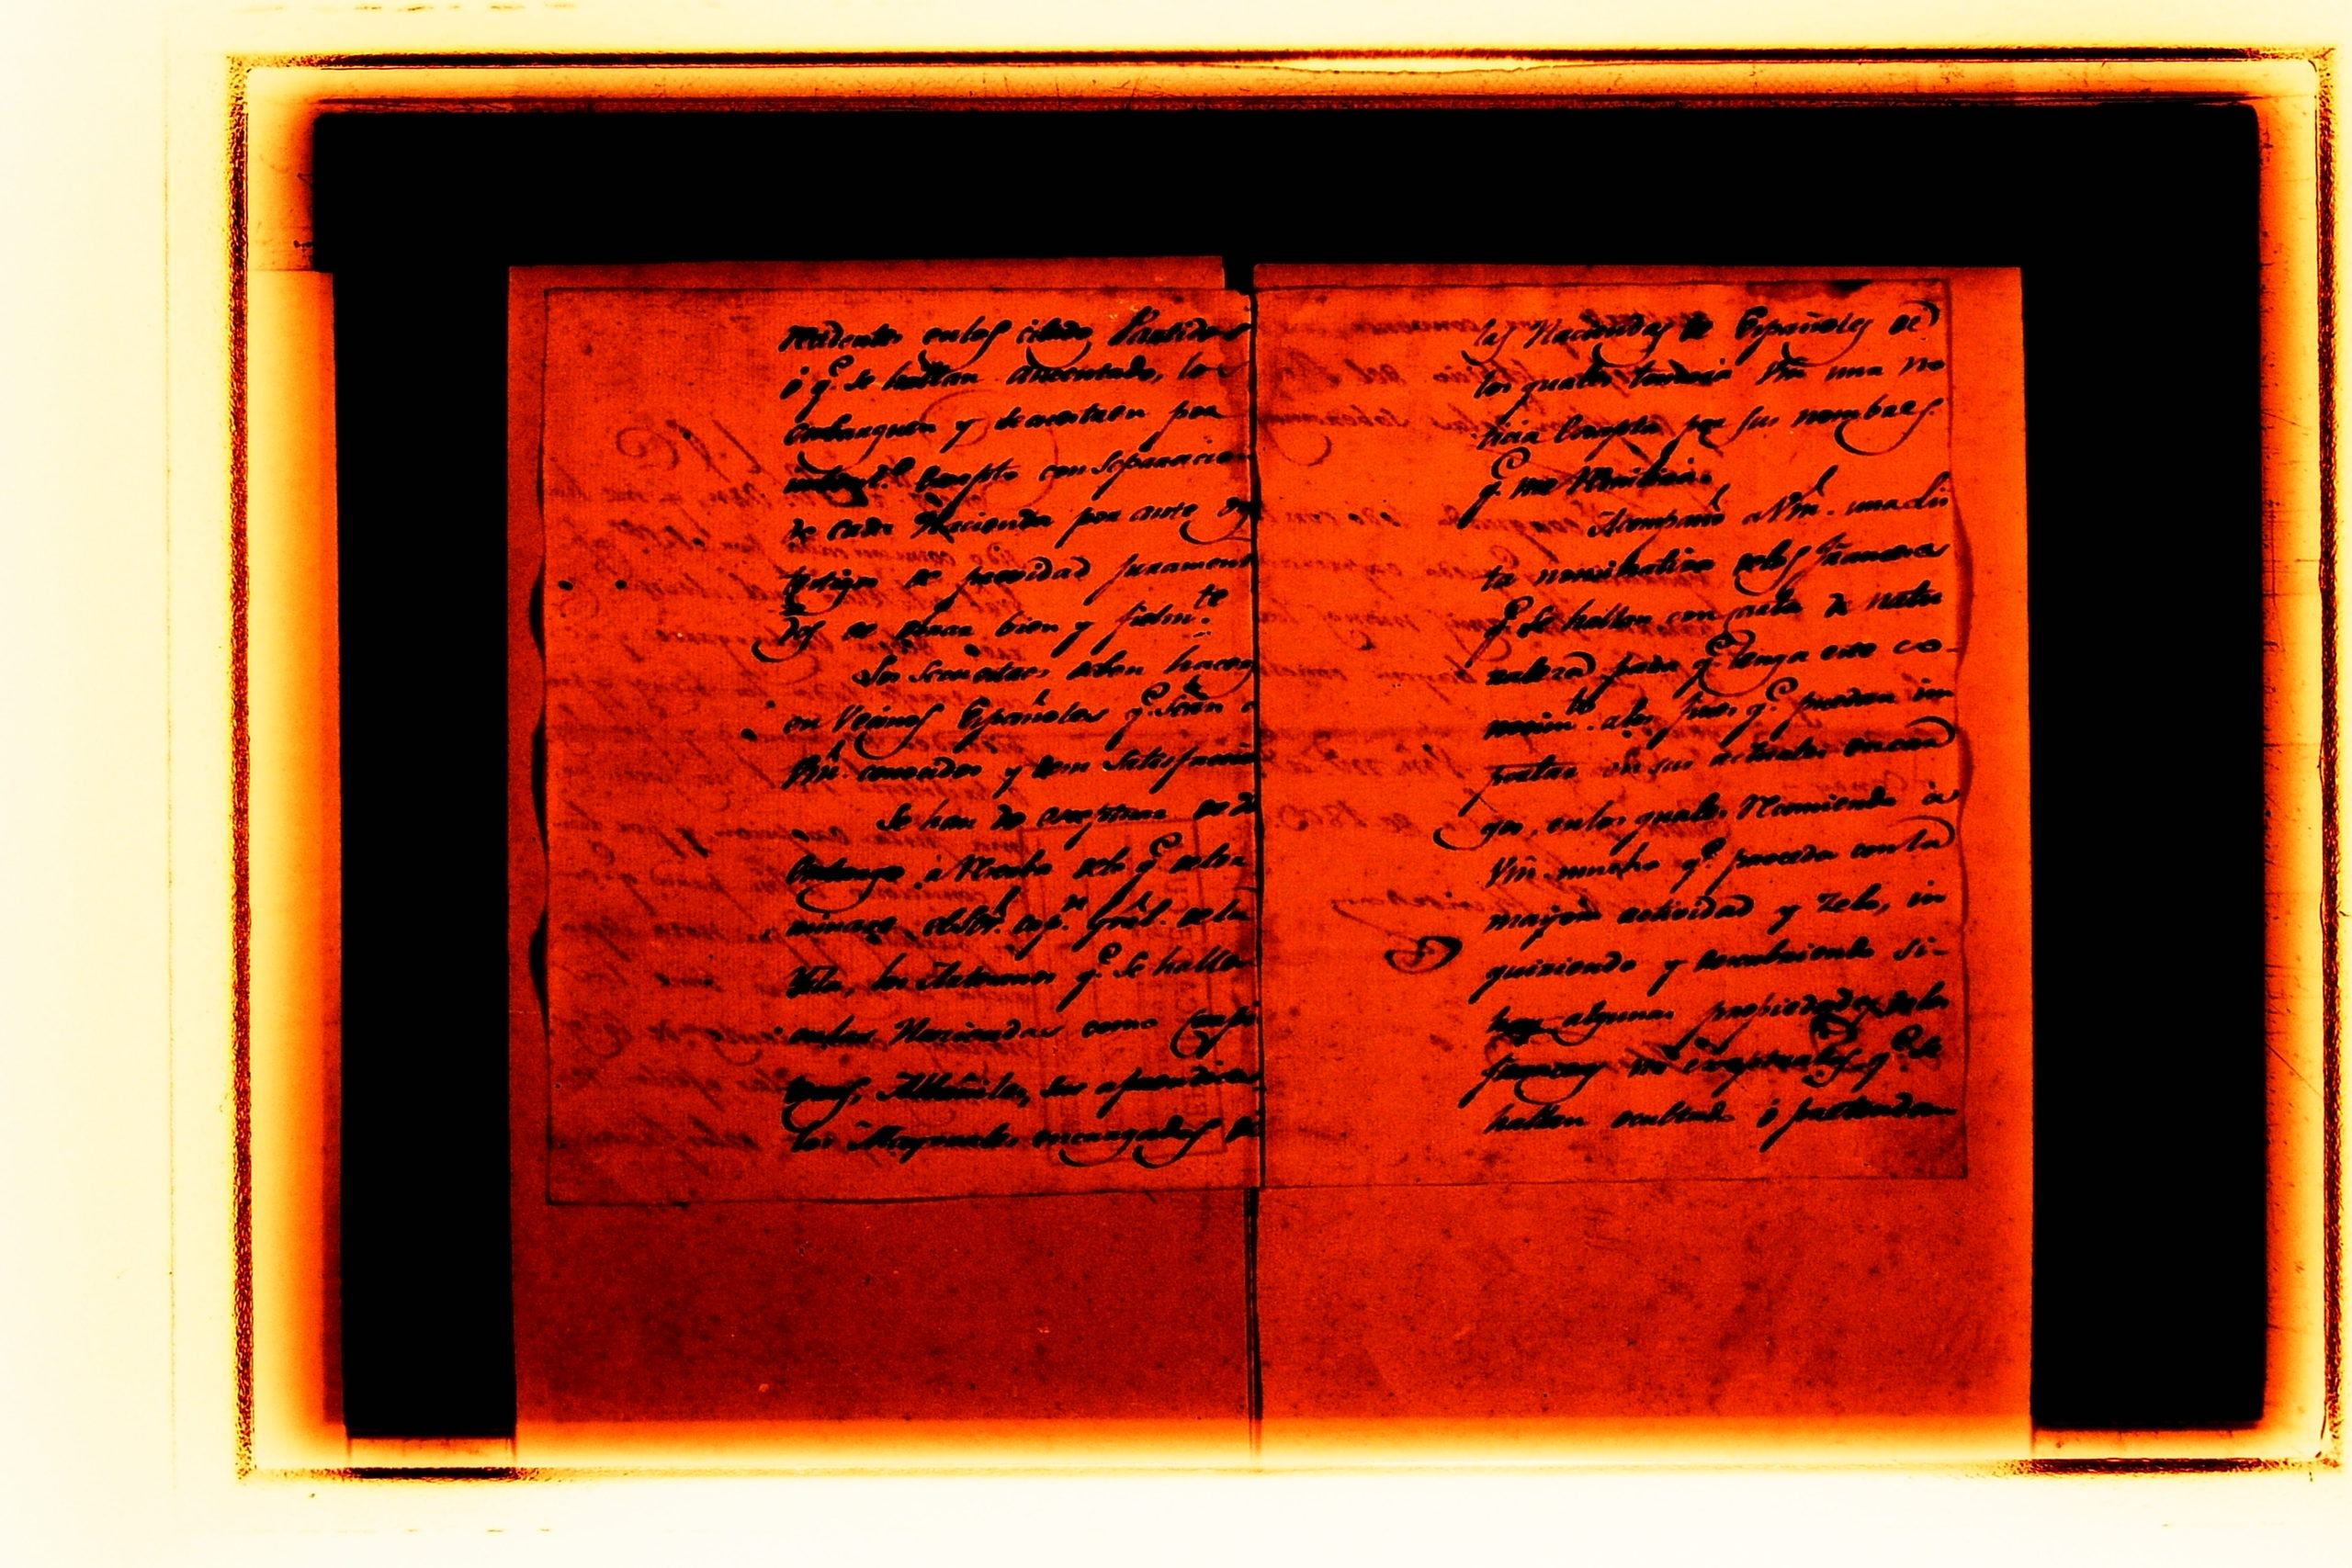 recidentes en los citados Partidos
ó q.e se hallan aucentados, los
embarguen y secuestren por
Ymbent.o Compto con separacion
de cada Hacienda por ante dos
testigos de providad juramenta
dos de obrar bien y fielm.te
Los secuestros deben hacerce
en Vecinos Españoles q.e sean
Vm. conocidos y de su satisfaccion
Se han de exeptuar
Embargo á Merito de lo q.e deter
minare el Sor. Cap.n Gral. de la
Ysla, los Artesanos q.e se hallen
en las Haciendas como Carpin
teros, Albañiles, sus aprendices
los Mayorales encargados de
las Haciendas de Españoles de
los quales tendria Vm una no
ticia Compta por sus nombres
q.e me remitirá.
Acompaño a Vm. una lis
ta nominativa de los Franceses
q.e se hallan con carta de natu
raleza para q.e tenga este co-
nocim.to a los fines q.e puedan im
portar en sus actuales encar
gos, en los quales recomiendo á
Vm mucho q.e proceda con la
mayor actividad y Zelo, in
quiriendo y descubriendo si-
hay algunas propiedades de los
franceses no exeptuados q.e se
hallen ocultando ó pretendan